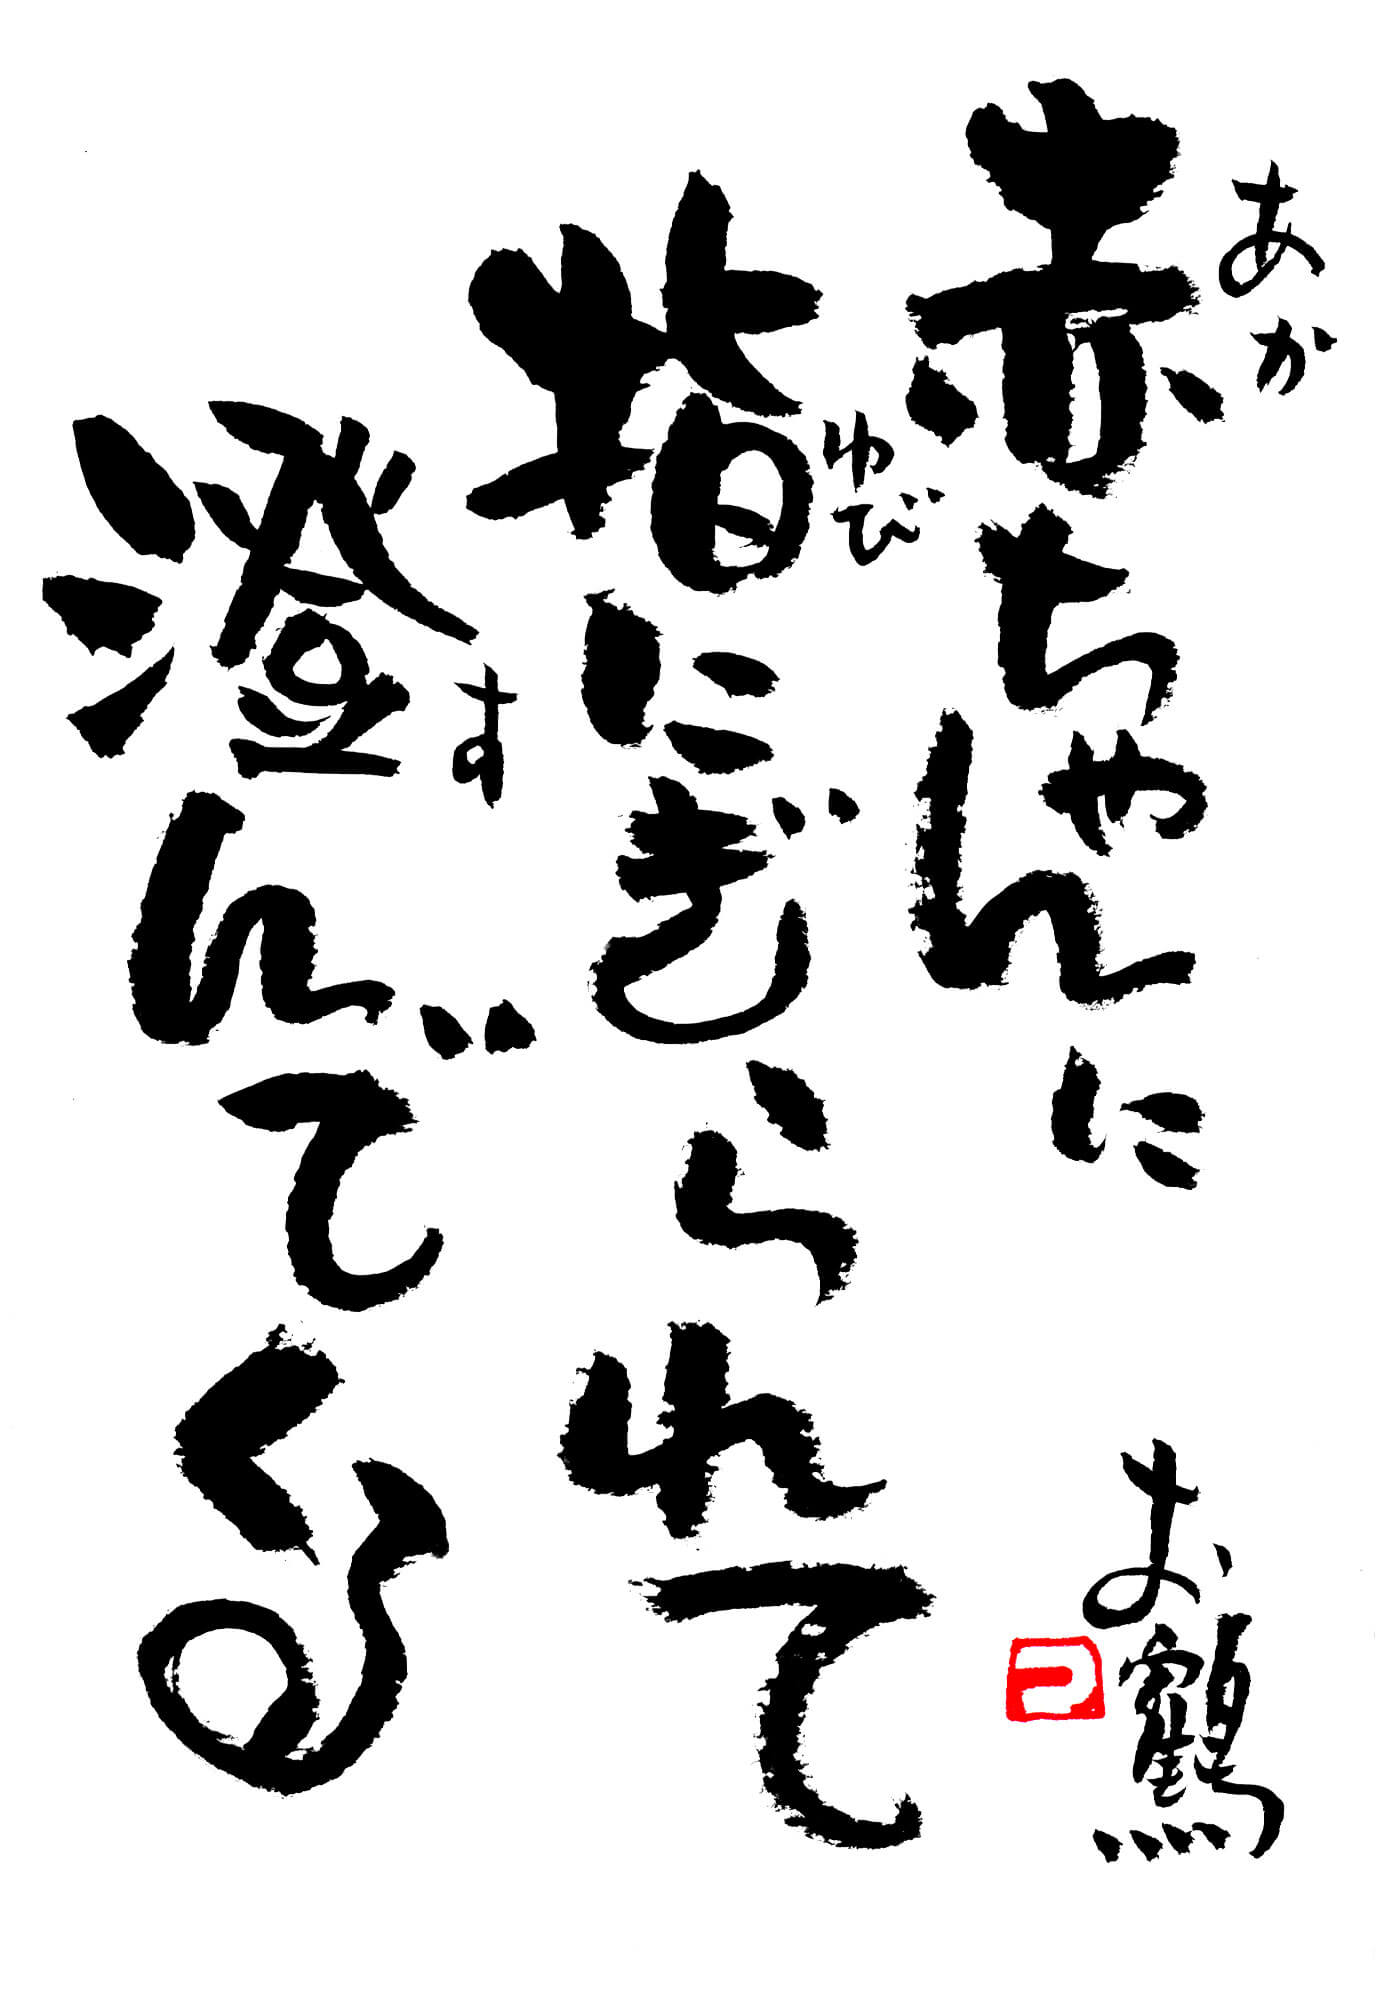 赤ちゃんに
あか
指にぎられて
ゆび
澄んでくる
す
お鶴
つ